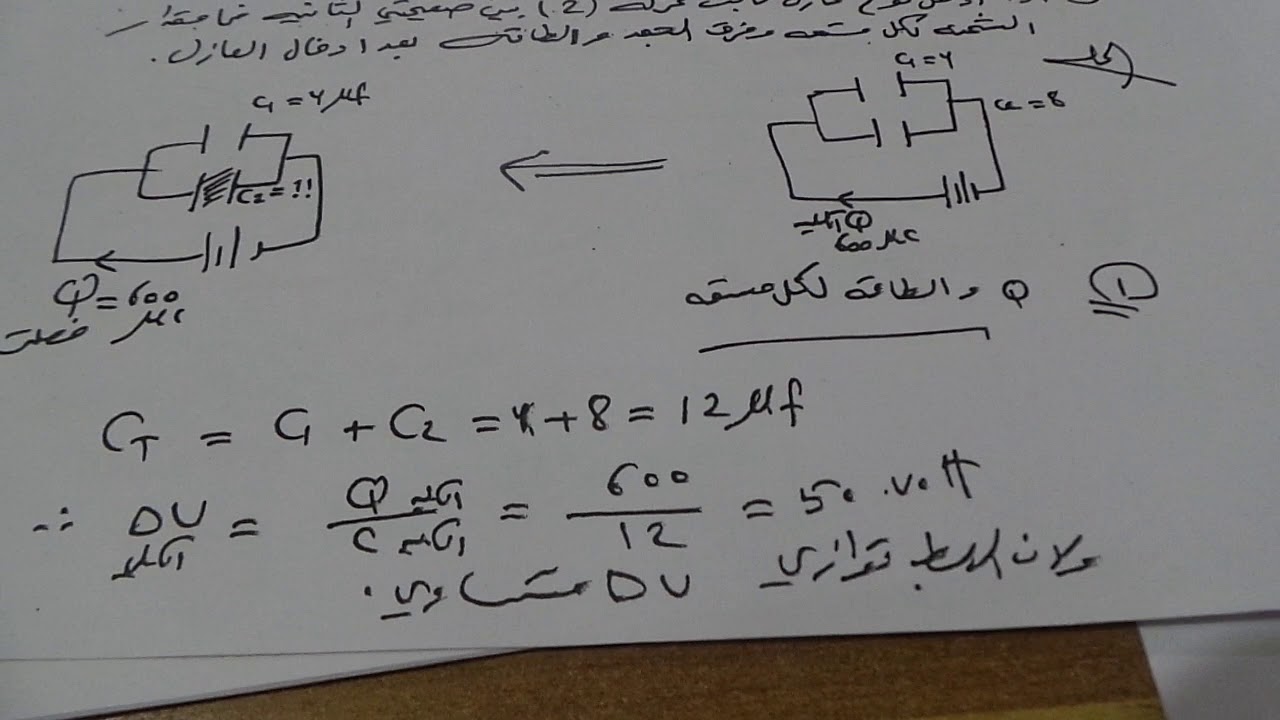 عازل ثابت عزله (2) بين صفيحتي الثانية فما مقدار
الشحنه لكل متسعه وفرق الجهد والطاقة بعد ادخال العازل.
الحل
C1 = 4
C2 = 8
Q الكلية =
600 μc
C1 = 4 μf
C2 = !!
Q = 600
μc فصلت
① Q والطاقة لكل متسعه
CT = C1 + C2 = 4 + 8 = 12 μf
∴ DV الكلي = Q الكلية / C الكلية = 600 / 12 = 50 .volt
ولان الربط توازي DV متساوي.